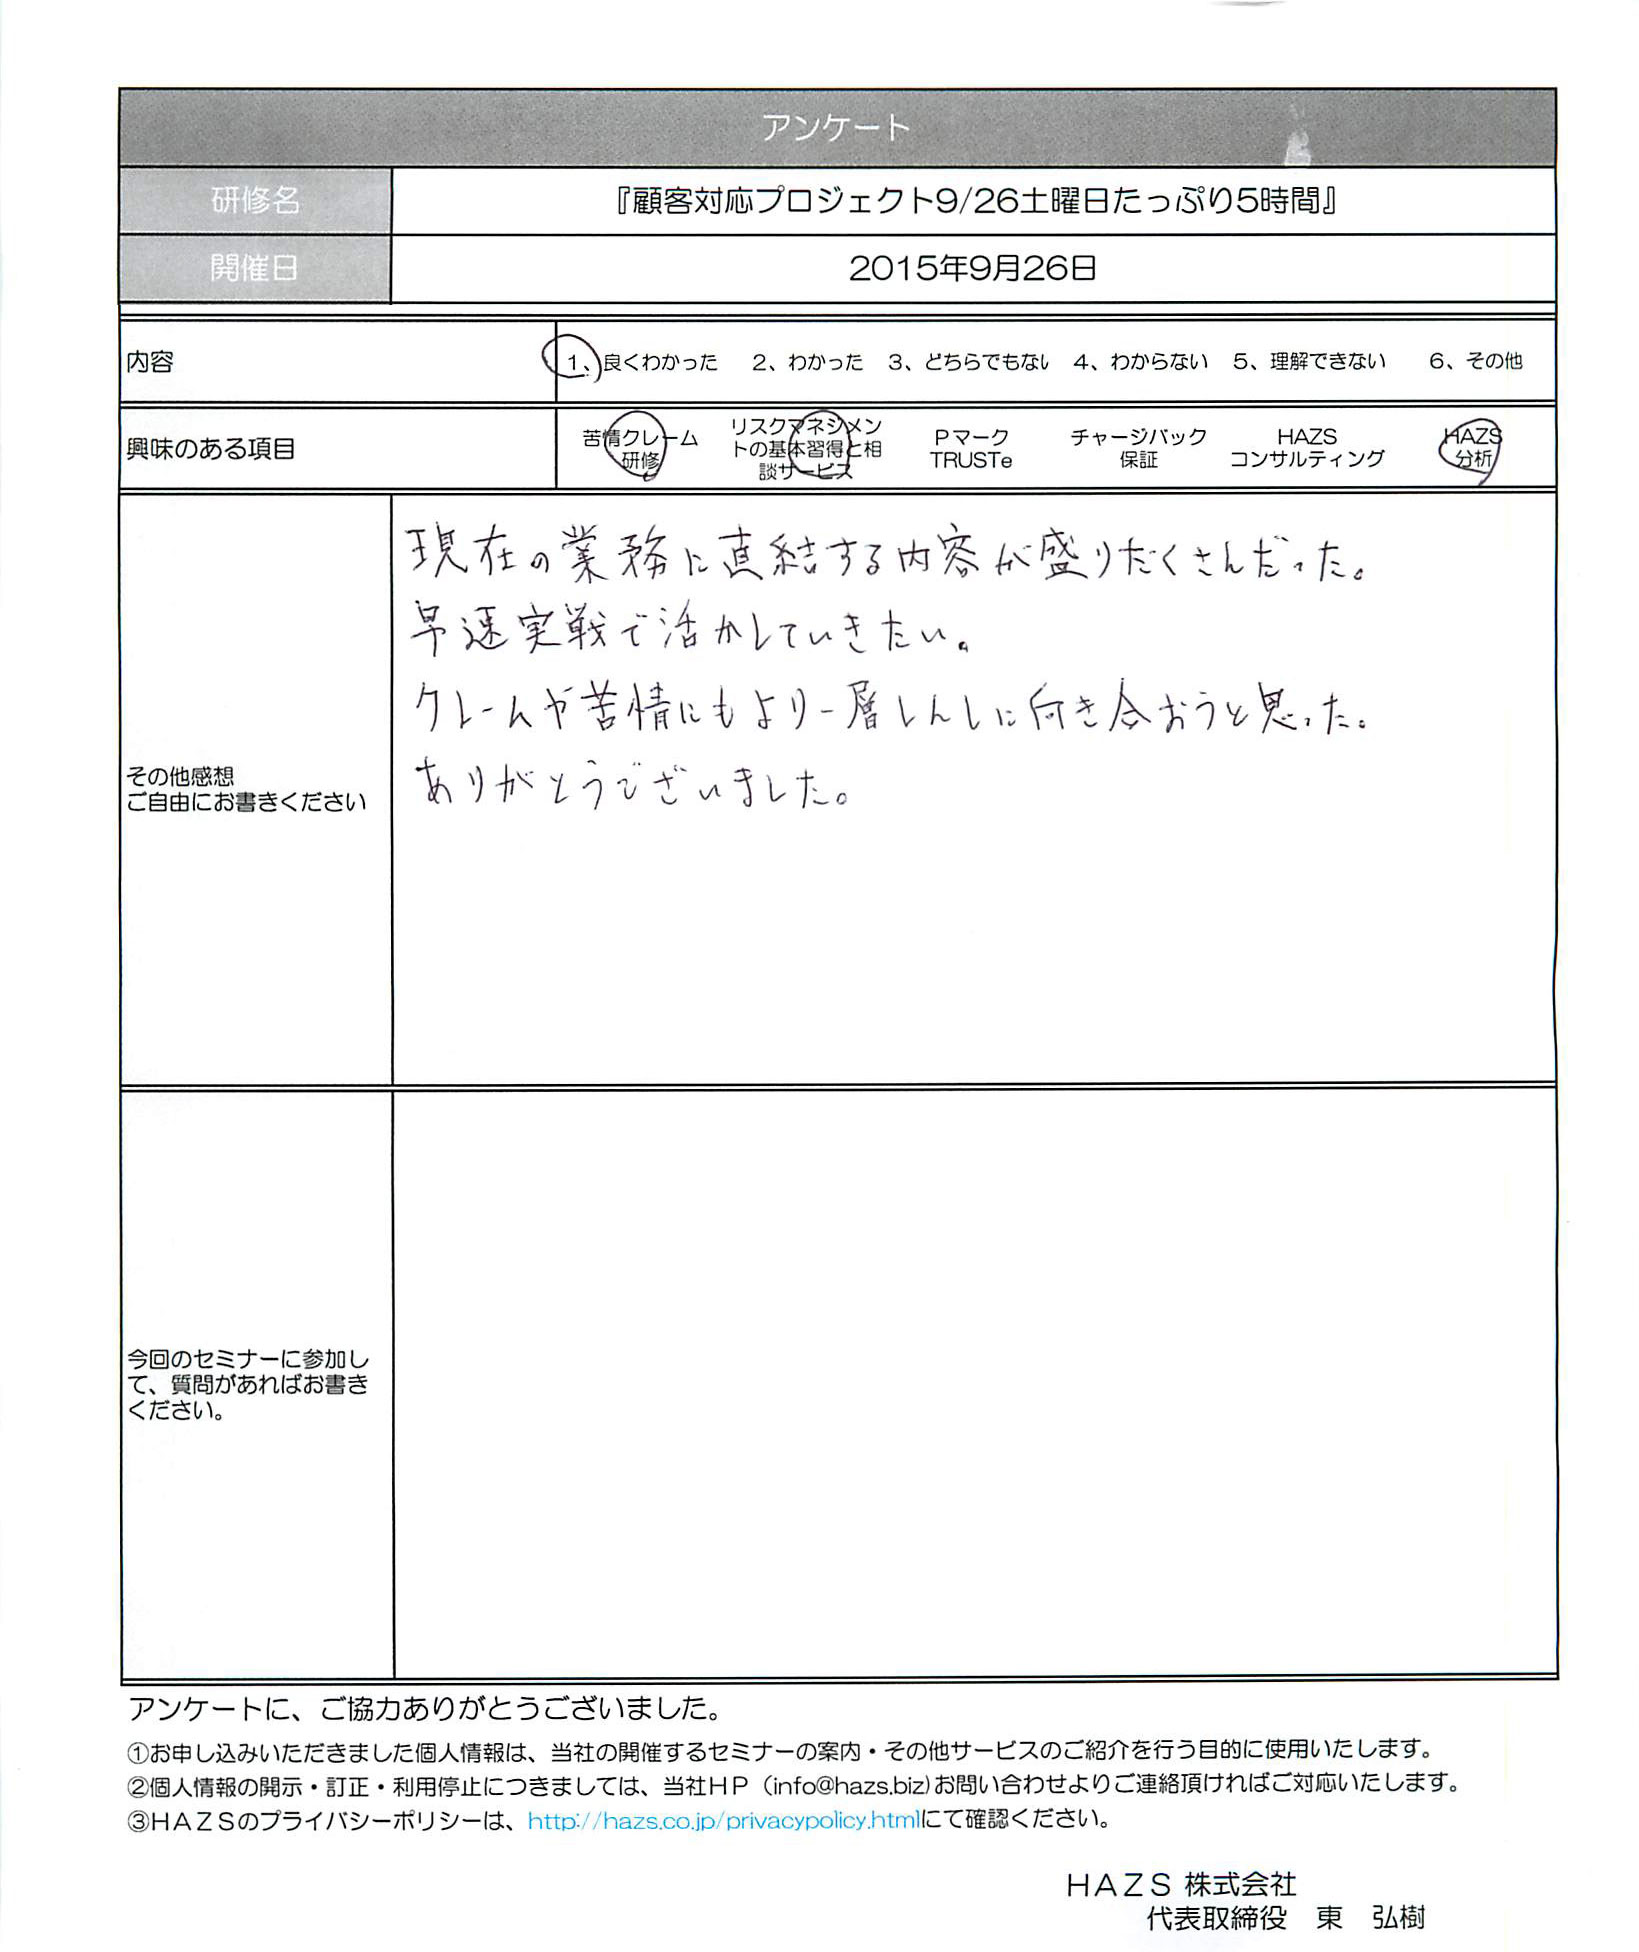 アンケート
研修名
『顧客対応プロジェクト9/26土曜日たっぷり5時間』
開催日
2015年9月26日
内容
1、良くわかった 2、わかった 3、どちらでもない 4、わからない 5、理解できない 6、その他
興味のある項目
苦情クレーム
研修
リスクマネジメン
トの基本習得と相
談サービス
Pマーク
TRUSTe
チャージバック
保証
HAZS
コンサルティング
HAZS
分析
その他感想
ご自由にお書きください
現在の業務に直結する内容が盛りだくさんだった。
早速実戦で活かしていきたい。
クレームや苦情にもより一層しんしに向き合おうと思った。
ありがとうございました。
今回のセミナーに参加し
て、質問があればお書き
ください。
アンケートに、ご協力ありがとうございました。
①お申し込みいただきました個人情報は、当社の開催するセミナーの案内・その他サービスのご紹介を行う目的に使用いたします。
②個人情報の開示・訂正・利用停止につきましては、当社HP（info@hazs.biz)お問い合わせよりご連絡頂ければご対応いたします。
③HAZSのプライバシーポリシーは、http://hazs.co.jp/privacypolicy.htmlにて確認ください。
HAZS 株式会社
代表取締役　東　弘樹